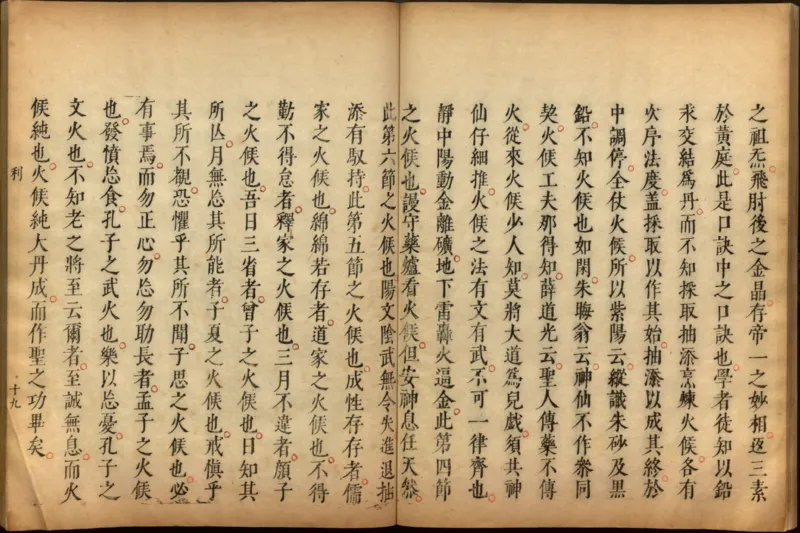 之祖炁飛肘後之金晶存帝一之妙相逐三素
於黃庭此是口訣中之口訣也學者徒知以鉛
求交結爲丹而不知採取抽添烹煉火候各有
次序法度蓋採取以作其始抽添以成其終於
中調停全仗火候所以紫陽云縱識朱砂及黑
鉛不知火候也如閑朱晦翁云神仙不作參同
契火候工夫那得知薛道光云聖人傳藥不傳
火從來火候少人知莫將大道爲兒戲須共神
仙仔細推火候之法有文有武不可一律齊也
靜中陽動金離礦地下雷轟火逼金此第四節
之火候也謾守藥爐看火候但安神息任天然
此第六節之火候也陽文陰武無令失進退抽
添有馭持此第五節之火候也成性存存者儒
家之火候也綿綿若存者道家之火候也不得
勤不得怠者釋家之火候也三月不違者顏子
之火候也吾日三省者曾子之火候也日知其
所亾月無忘其所能者子夏之火候也戒愼乎
其所不覩恐懼乎其所不聞子思之火候也必
有事焉而勿正心勿忘勿助長者孟子之火候
也發憤忘食孔子之武火也樂以忘憂孔子之
文火也不知老之將至云爾者至誠無息而火
候純也火候純大丹成而作聖之功畢矣
利
十九